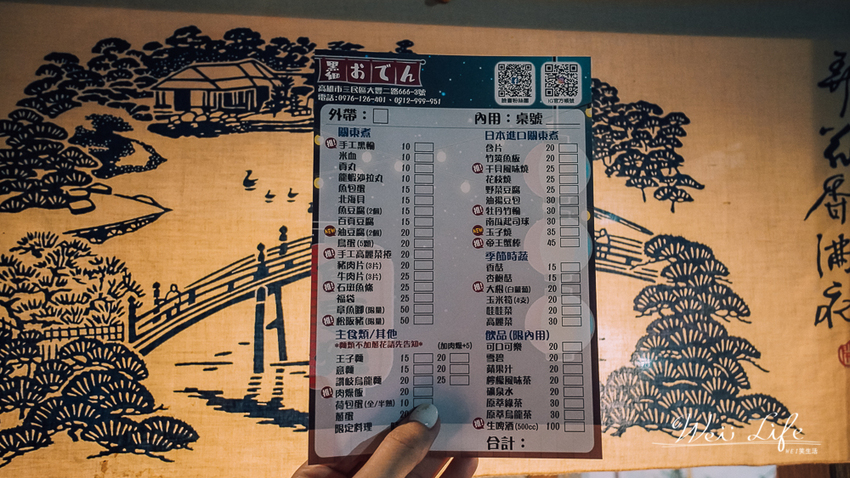 黑輪 おでん
高雄市三民區大豐二路666-3號
電話:0976-126-401 · 0912-999-951
臉書粉絲團
IG官方帳號
外帶：
內用：桌號
關東煮
手工黑輪 10
米血 10
貢丸 10
龍蝦沙拉丸 15
魚包蛋 15
北海貝 15
魚豆腐(2個) 15
百頁豆腐 15
油豆腐(2個) 20
鳥蛋(5顆) 20
手工高麗菜捲 20
豬肉片(3片) 20
牛肉片(3片) 25
石垣魚條 25
福袋 25
章魚腳(限量) 50
松阪豬(限量) 50
主食類/其他
*麵類不加蔥花請先告知*
(加肉燥+5)
王子麵 15 20
意麵 15 20
讚岐烏龍麵 20 25
肉燥飯 20
荷包蛋(全/半熟) 10
20
限定料理
日本進口關東煮
合片 20
竹筴魚飯 20
干貝風味燒 25
花枝燒 25
野菜豆腐 25
油揚豆包 30
牡丹竹輪 30
南瓜起司球 30
玉子燒 35
帝王蟹棒 45
季節時蔬
香菇 15
杏鮑菇 15
大根(白蘿蔔) 20
玉米筍(4支) 20
娃娃菜 20
高麗菜 30
飲品(限內用)
可口可樂 20
雪碧 20
蘋果汁 20
檸檬風味茶 20
礦泉水 20
原萃綠茶 30
原萃烏龍茶 30
生啤酒(500cc) 100
合計：
Wei Life